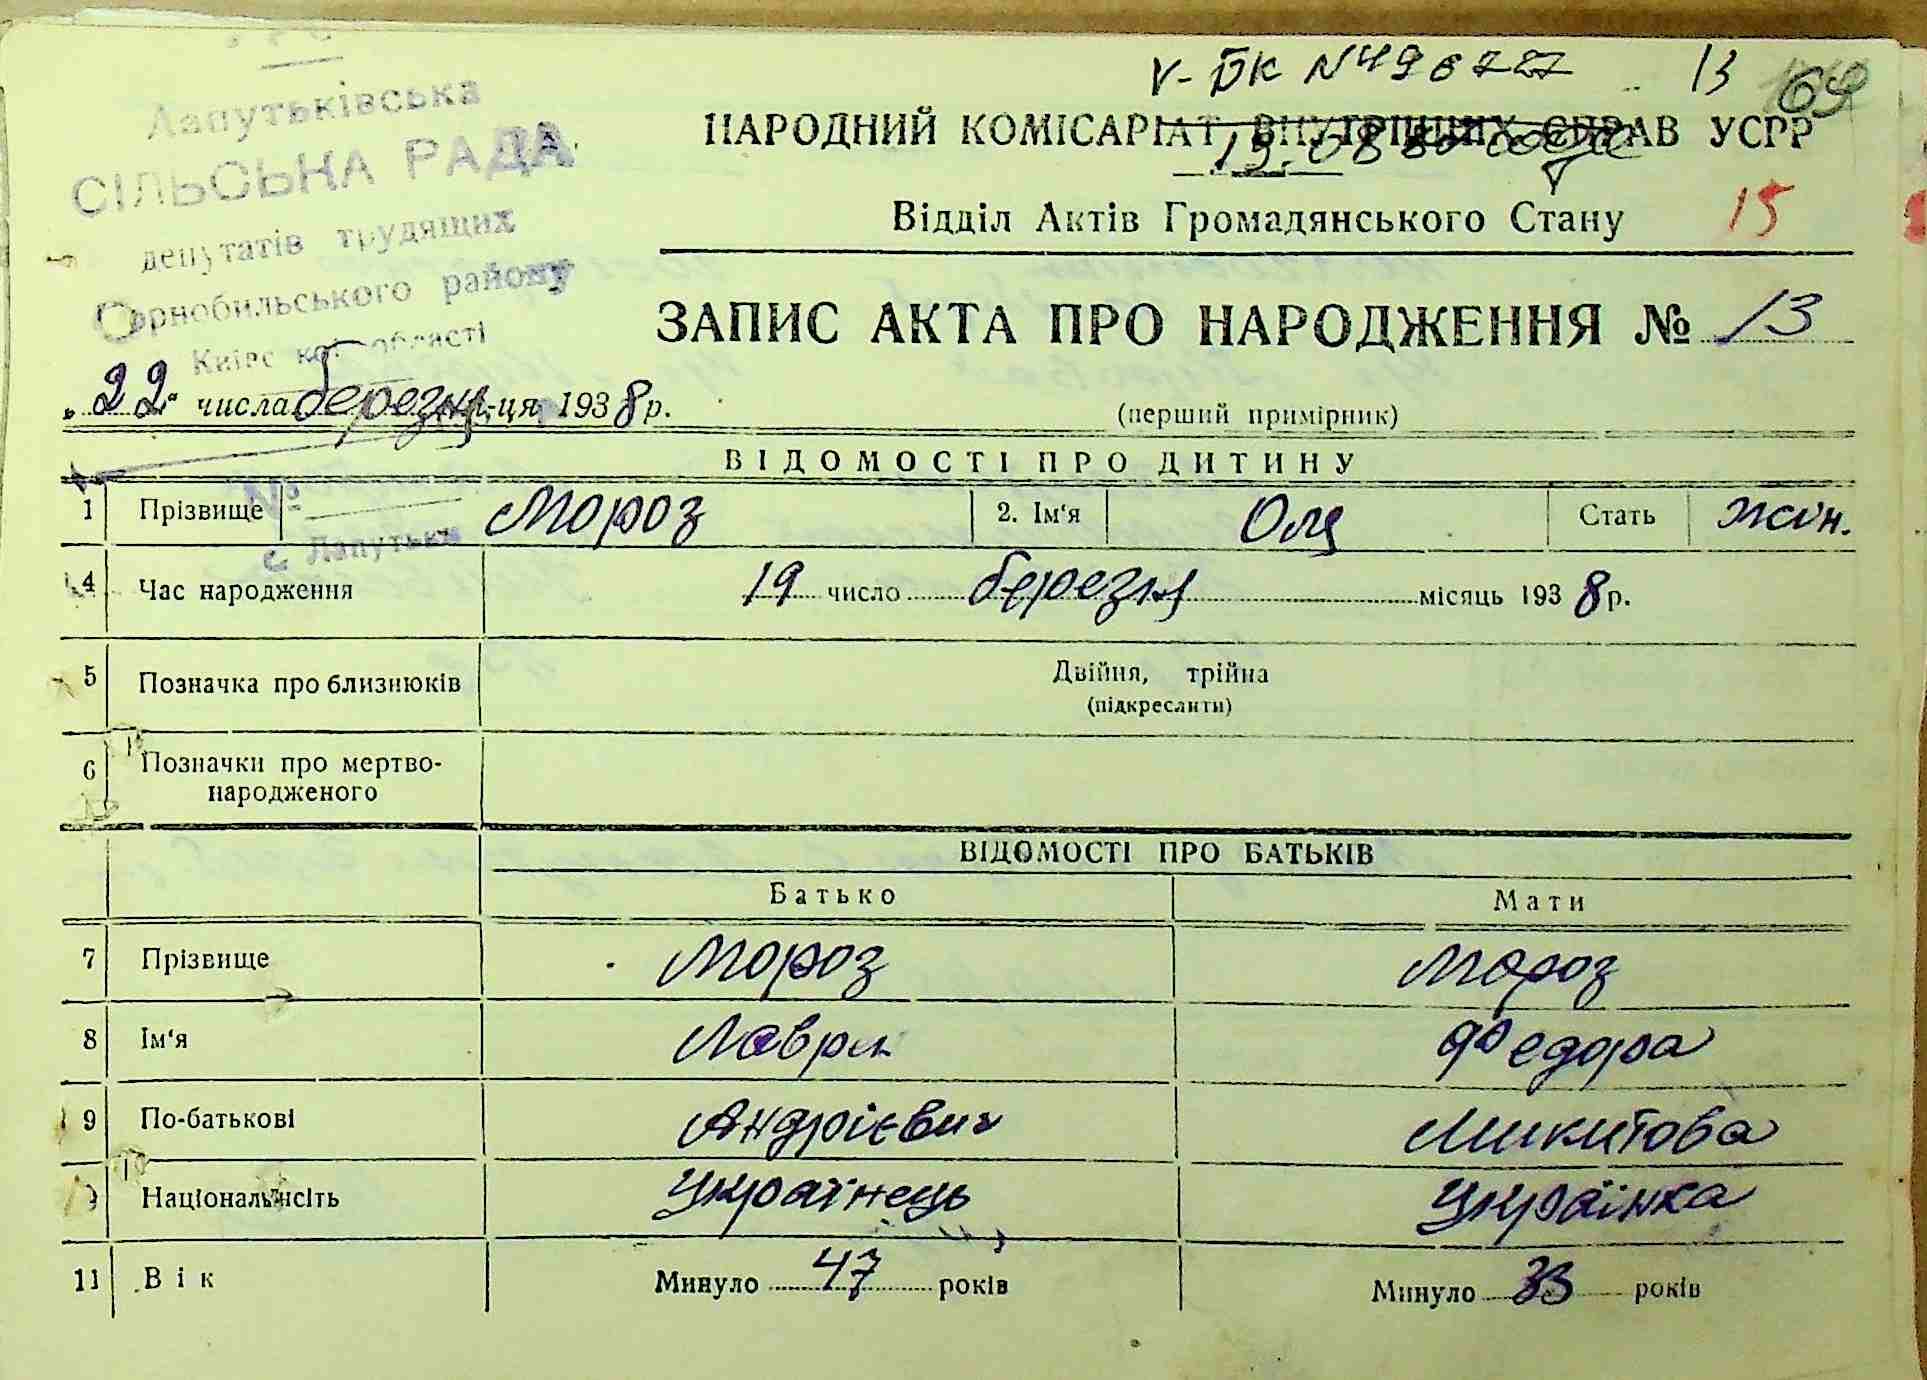 V-БК N496727 13 69
НАРОДНИЙ КОМІСАРІАТ ВНУТРІШНІХ СПРАВ УСРР
19.08
Відділ Актів Громадянського Стану 15
Лапутьківська
СІЛЬСЬКА РАДА
депутатів трудящих
Чорнобильського району
Київської області
ЗАПИС АКТА ПРО НАРОДЖЕННЯ № 13
„22“ числа березня м-ця 1938 р.
(перший примірник)
ВІДОМОСТІ ПРО ДИТИНУ
№
с. Лапутьки
1 Прізвище Мороз 2. Ім‘я Оля Стать жін.
4 Час народження 19 число березня місяць 1938 р.
5 Позначка про близнюків Двійня, трійна
(підкреслити)
6 Позначки про мертво-
народженого
ВІДОМОСТІ ПРО БАТЬКІВ
Батько Мати
7 Прізвище Мороз Мороз
8 Ім‘я Федора
9 По-батькові Андрієвич Микитова
Національність Українець Українка
11 Вік Минуло 47 років Минуло 33 років